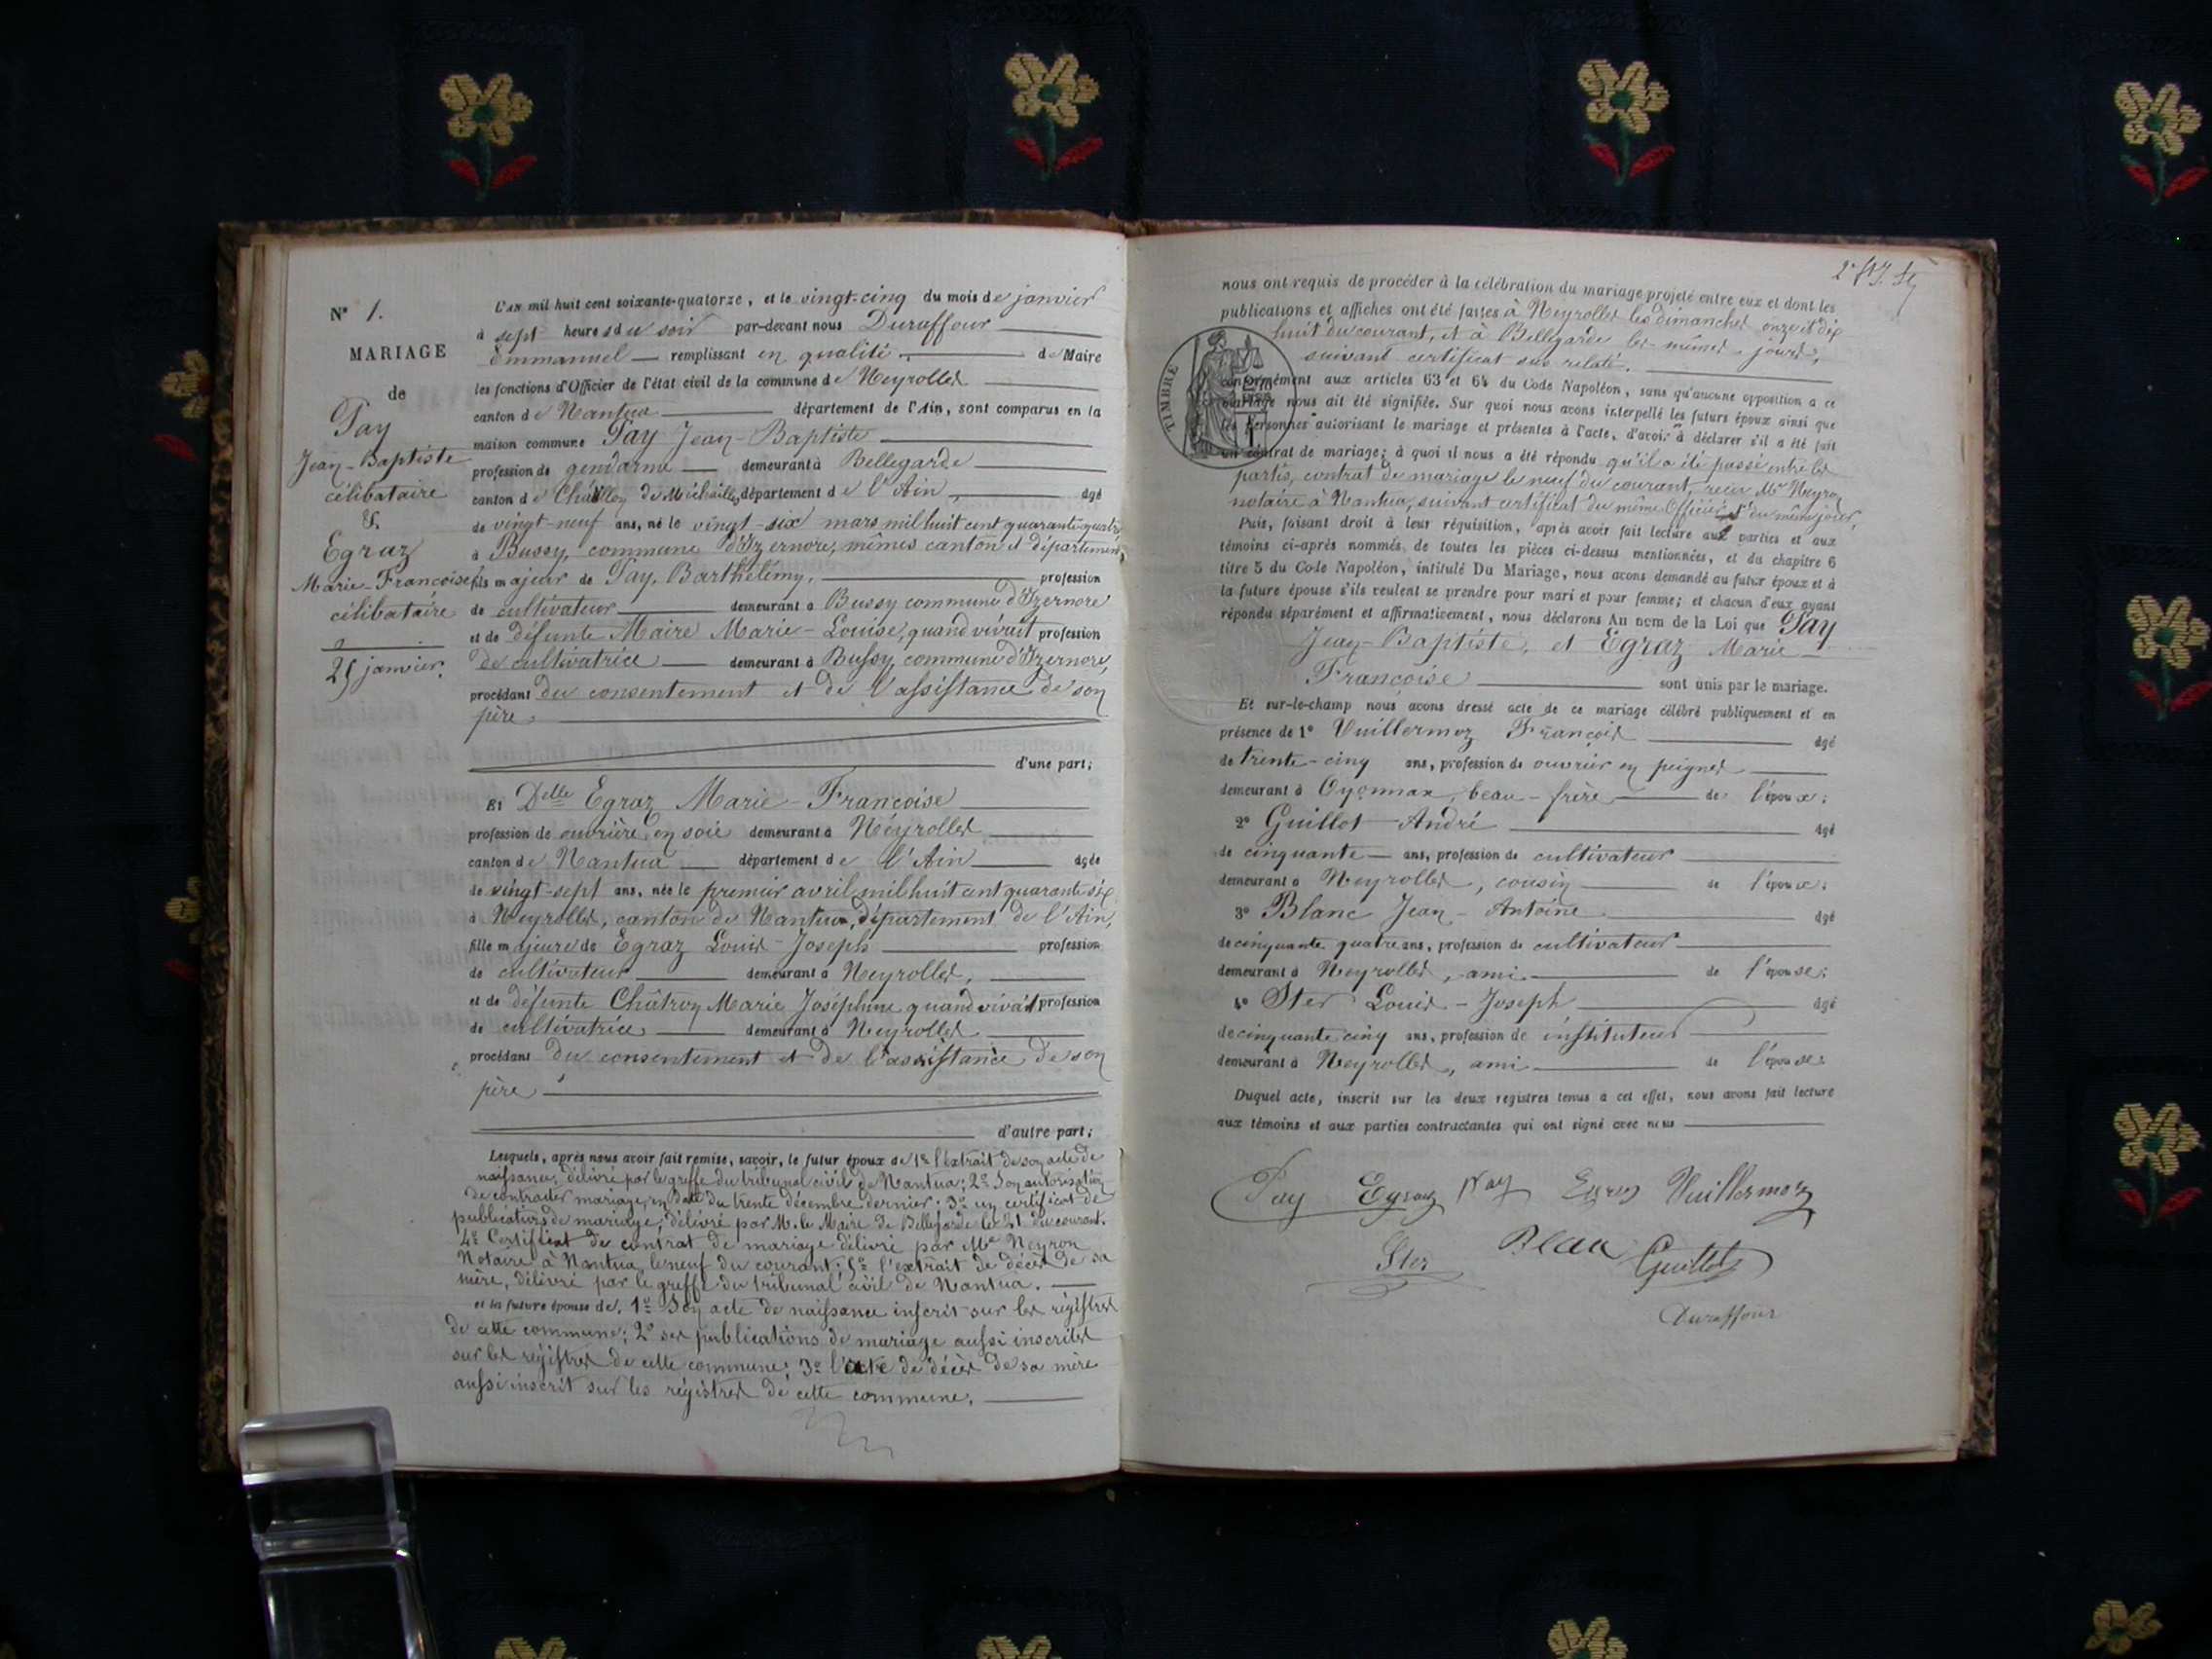 N° 1.
MARIAGE
de
Pay
Jean-Baptiste
célibataire
&.
Egraz
Marie-Françoise
célibataire
25 janvier.
L'an mil huit cent soixante-quatorze, et le vingt-cinq du mois de janvier
à sept heures du soir par-devant nous Duraffour
Emmanuel remplissant en qualité de Maire
les fonctions d'Officier de l'état civil de la commune de Neyrolles
canton de Nantua département de l'Ain, sont comparus en la
maison commune Pay Jean-Baptiste
profession de gendarme demeurant à Bellegarde
canton de Châtillon de Michaille, département de l'Ain, âgé
de vingt-neuf ans, né le vingt-six mars mil huit cent quarante-quatre
à Bussy, commune d'Izernore, mêmes canton et département,
fils majeur de Pay, Barthélémy, profession
de cultivateur demeurant à Bussy commune d'Izernore
et de défunte Maire Marie-Louise, quand vivait profession
de cultivatrice demeurant à Bussy, commune d'Izernore,
procédant du consentement et de l'assistance de son
père,
d'une part;
Et Delle Egraz Marie-Françoise
profession de ouvrière en soie demeurant à Neyrolles
canton de Nantua département de l'Ain âgée
de vingt-sept ans, née le premier avril mil huit cent quarante six
à Neyrolles, canton de Nantua, département de l'Ain,
fille majeure de Egraz Louis-Joseph profession
de cultivateur demeurant à Neyrolles,
et de défunte Châtron Marie Joséphine quand vivait profession
de cultivatrice demeurant à Neyrolles
procédant du consentement et de l'assistance de son
père
d'autre part;
Lesquels, après nous avoir fait remise, savoir, le futur époux de 1° l'extrait de son acte de
naissance, délivré par le greffe du tribunal civil de Nantua; 2° Son autorisation
de contracter mariage, en date du trente décembre dernier; 3° un certificat de
publications de mariage, délivré par M. le Maire de Bellegarde le 21 du courant.
4° Certificat de contrat de mariage délivré par Me Neyron
Notaire à Nantua le neuf du courant; 5° l'extrait de décès de sa
mère, délivré par le greffe du tribunal civil de Nantua.
et la future épouse de, 1° Son acte de naissance inscrit sur les régistres
de cette commune; 2° ses publications de mariage aussi inscrites
sur les régistres de cette commune; 3° l'acte de décès de sa mère
aussi inscrit sur les régistres de cette commune,
nous ont requis de procéder à la célébration du mariage projeté entre eux et dont les
publications et affiches ont été faites à Neyrolles les dimanches onze et dix
huit du courant, et à Bellegarde les mêmes jours,
suivant certificat sus relaté.
TIMBRE
conformément aux articles 63 et 64 du Code Napoléon, sans qu'aucune opposition a ce
mariage nous ait été signifiée. Sur quoi nous avons interpellé les futurs époux ainsi que
les personnes autorisant le mariage et présentes à l'acte, d'avoir à déclarer s'il a été fait
un contrat de mariage; à quoi il nous a été répondu qu'il a été passé entre les
partis, contrat de mariage le neuf du courant, reçu Me Neyron
notaire à Nantua, suivant certificat du même Officier du même jour,
Puis, faisant droit à leur réquisition, après avoir fait lecture aux parties et aux
témoins ci-après nommés, de toutes les pièces ci-dessus mentionnées, et du chapitre 6
titre 5 du Code Napoléon, intitulé Du Mariage, nous avons demandé au futur époux et à
la future épouse s'ils veulent se prendre pour mari et pour femme; et chacun d'eux ayant
répondu séparément et affirmativement, nous déclarons Au nom de la Loi que Pay
Jean-Baptiste, et Egraz Marie
Françoise sont unis par le mariage.
Et sur-le-champ nous avons dressé acte de ce mariage célébré publiquement et en
présence de 1° Vuillermoz François âgé
de trente-cinq ans, profession de ouvrier en peignes
demeurant à Oyonnax, beau-frère de l'époux;
2° Guillot André âgé
de cinquante ans, profession de cultivateur
demeurant à Neyrolles, cousin de l'époux;
3° Blanc Jean-Antoine âgé
de cinquante quatre ans, profession de cultivateur
demeurant à Neyrolles, ami de l'épouse;
4° Ster Louis-Joseph âgé
de cinquante cinq ans, profession de instituteur
demeurant à Neyrolles, ami de l'épouse
Duquel acte, inscrit sur les deux registres tenus à cet effet, nous avons fait lecture
aux témoins et aux parties contractantes qui ont signé avec nous
Pay Egraz Pay Egraz Vuillermoz
Ster Blan Guillot
Duraffour